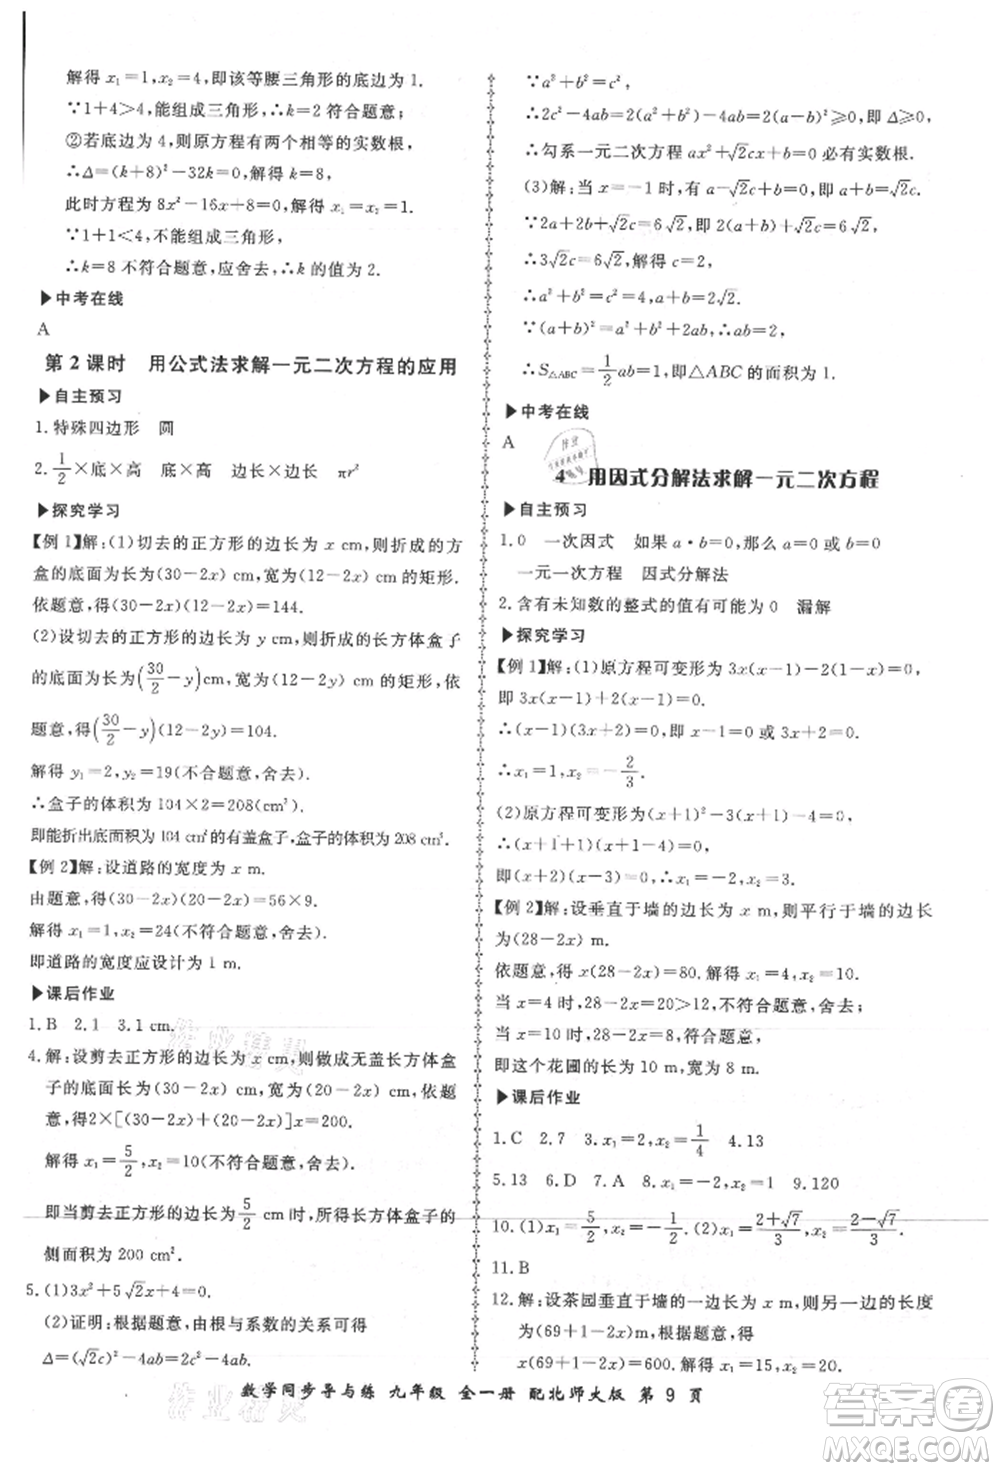 解得 x₁=1,x₂=4,即该等腰三角形的底边为 1.
∵1+4>4,能组成三角形,∴k=2 符合题意;
②若底边为 1,则原方程有两个相等的实数根,
∴Δ=(k+8)²-32k=0,解得 k=8,
此时方程为 8x²-16x+8=0,解得 x₁=x₂=1.
∵1+1<4,不能组成三角形,
∴k=8 不符合题意,应舍去,∴k 的值为 2.
▶中考在线
A
第 2 课时 用公式法求解一元二次方程的应用
▶自主预习
1.特殊四边形 圆
2.1/2×底×高 底×高 边长×边长 πr²
▶探究学习
【例 1】解:(1)切去的正方形的边长为 x cm,则折成的方
盒的底面为长(30-2x) cm,宽为(12-2x) cm 的矩形.
依题意,得(30-2x)(12-2x)=144.
(2)设切去的正方形的边长为 y cm,则折成的长方体盒子
的底面为长(30/2-y)cm,宽为(12-2y) cm 的矩形,依
题意,得(30/2-y)(12-2y)=104.
解得 y₁=2,y₂=19(不合题意,舍去).
∴盒子的体积为 104×2=208(cm³).
即能折出底面积为 104 cm² 的有盖盒子,盒子的体积为 208 cm³.
【例 2】解:设道路的宽度为 x m.
由题意,得(30-2x)(20-2x)=56×9.
解得 x₁=1,x₂=24(不符合题意,舍去).
即道路的宽度应设计为 1 m.
▶课后作业
1.B 2.1 3.1 cm.
4.解:设剪去正方形的边长为 x cm,则做成无盖长方体盒
子的底面长为(30-2x) cm,宽为(20-2x) cm.依题
意,得2×[(30-2x)+(20-2x)]x=200.
解得 x₁=5/2,x₂=10(不符合题意,舍去).
即当剪去正方形的边长为5/2 cm 时,所得长方体盒子的
侧面积为 200 cm².
5.(1)3x²+5√2x+4=0.
(2)证明:根据题意,由根与系数的关系可得
Δ=(√2c)²-4ab=2c²-4ab.
∵a²+b²=c²,
∴2c²-4ab=2(a²+b²)-4ab=2(a-b)²≥0,即 Δ≥0.
∴勾系一元二次方程 ax²+√2cx+b=0 必有实数根.
(3)解:当 x=-1 时,有 a-√2c+b=0,即 a+b=√2c.
∵2a+2b+√2c=6√2,即 2(a+b)+√2c=6√2,
∴3√2c=6√2,解得 c=2.
∴a²+b²=c²=4,a+b=2√2.
∵(a+b)²=a²+b²+2ab,∴ab=2.
∴S△ABC=1/2ab=1,即△ABC 的面积为 1.
▶中考在线
A
4 用因式分解法求解一元二次方程
▶自主预习
1.0 一次因式 如果 a·b=0,那么 a=0 或 b=0
一元一次方程 因式分解法
2.含有未知数的整式的值有可能为 0 漏解
▶探究学习
【例 1】解:(1)原方程可变形为 3x(x-1)-2(1-x)=0,
即 3x(x-1)+2(x-1)=0.
∴(x-1)(3x+2)=0,即 x-1=0 或 3x+2=0.
∴x₁=1,x₂=-2/3.
(2)原方程可变形为(x+1)²-3(x+1)=0.
∴(x+1)(x-2)=0,即 x+1=0 或 x-2=0.
∴x₁=-1,x₂=2.
【例 2】解:设垂直于墙的边长为 x m,则平行于墙的边长
为(28-2x) m.
依题意,得 x(28-2x)=80.解得 x₁=4,x₂=10.
当 x=4 时,28-2x=20>12,不符合题意,舍去.
当 x=10 时,28-2x=8,符合题意.
即这个花圃的长为 10 m,宽为 8 m.
▶课后作业
1.C 2.7 3.x₁=1,x₂=1/4 4.13
5.13 6.D 7.A 8.x₁=-2,x₂=1 9.120
10.(1)x₁=5/2,x₂=-1 (2)x₁=(2+√7)/3,x₂=(2-√7)/3.
11.B
12.解:设茶园垂直于墙的一边长为 x m,则另一边的长度
为(69+1-2x)m.根据题意,得
x(69+1-2x)=600.
数学同步导与练 九年级 全一册 配北师大版 第 9 页
作业精灵
作业精灵
答案圈
MXQE.COM